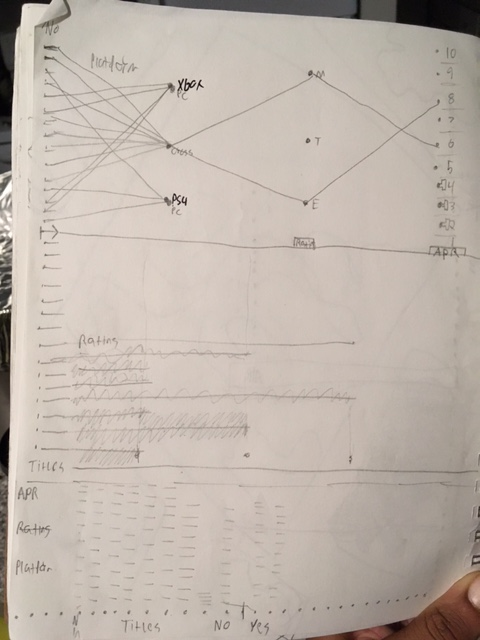 No
Platform
XBOX
PC
Cross
PS4
PC
M
T
E
10
9
8
7
6
5
4
3
2
1
Rating
Titles
APR
Rating
Platform
Titles
NO
Yes